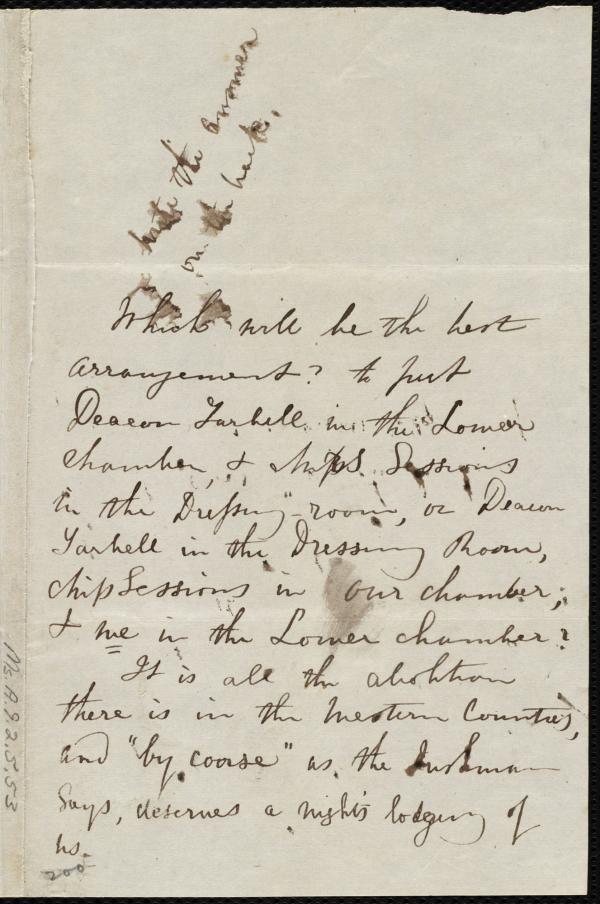 write the answer
on the back.
Which will be the best
arrangement? to put
Deacon Tarbell in the Lower
chamber, & Miss Sessions
in the Dressing-room, or Deacon
Tarbell in the Dressing Room,
Miss Sessions in our chamber,
& me in the Lower chamber?
It is all the abolition
there is in the Western Counties,
and "by coorse" as the Irishman
says, deserves a night's lodging of
us.
Ms.A.9.2.5.53
200